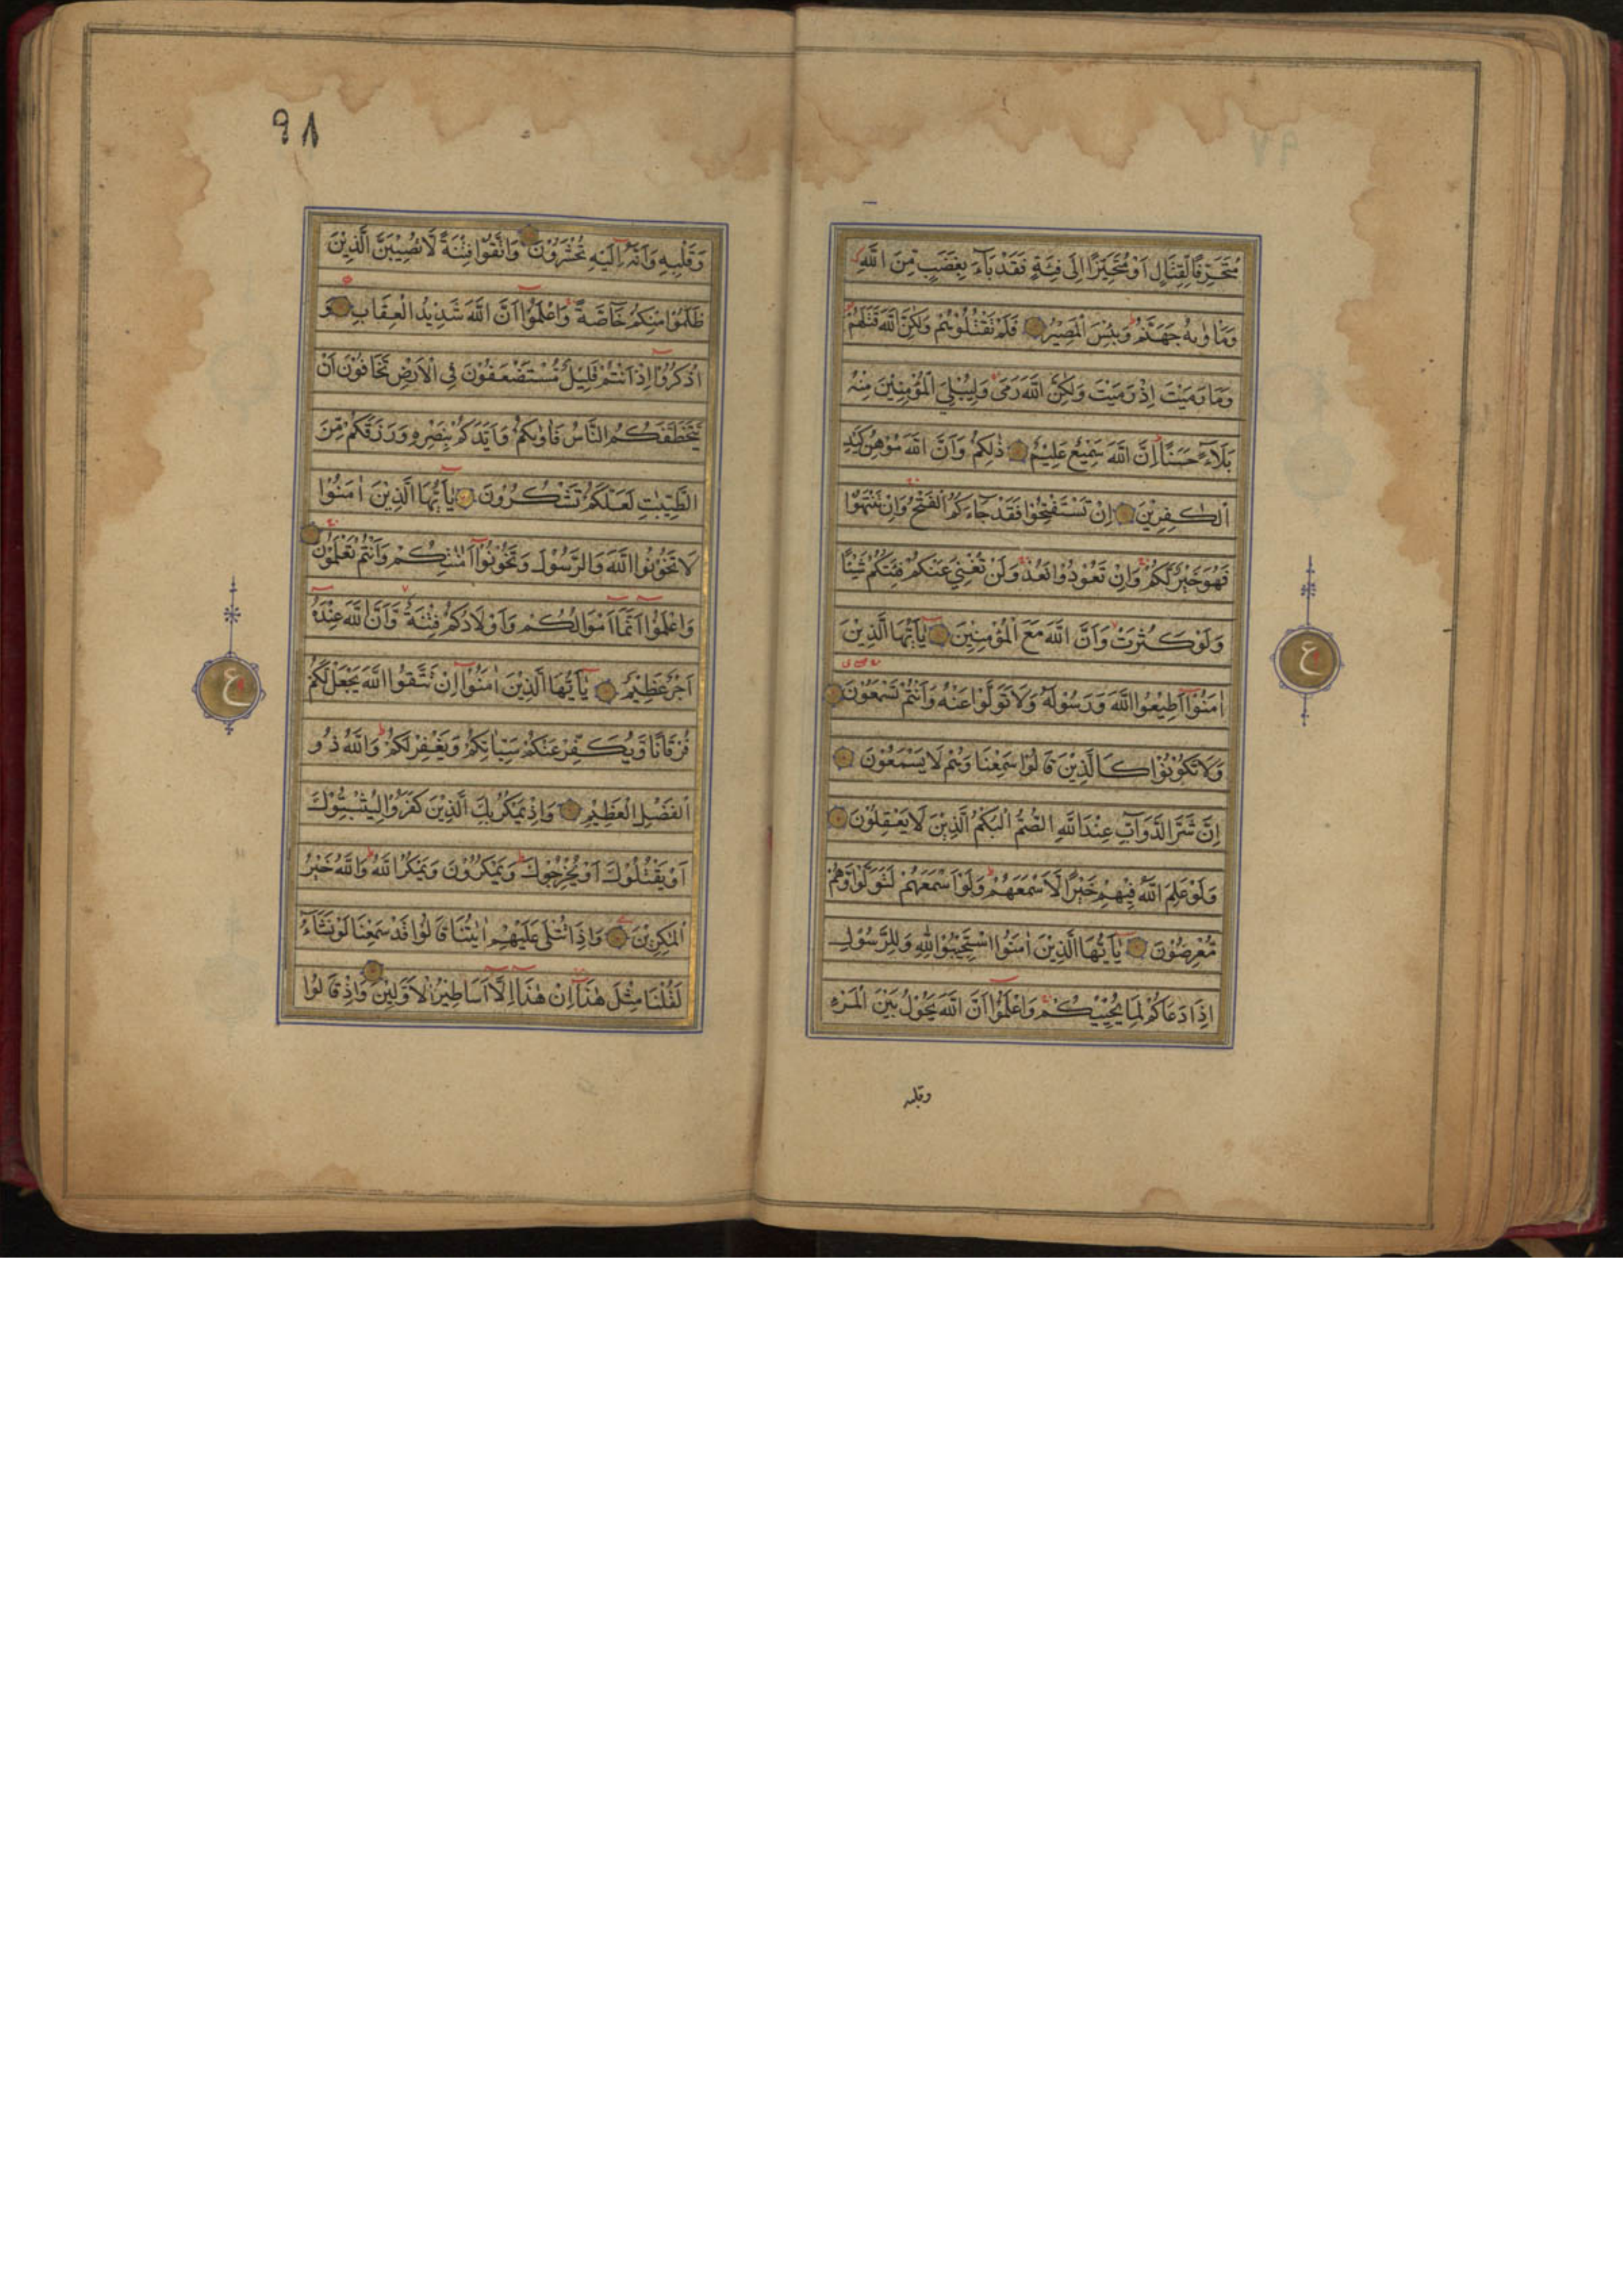 مُتَحَرِّفًا لِقِتَالٍ اَوْ مُتَحَيِّزًا اِلٰى فِئَةٍ فَقَدْ بَآءَ بِغَضَبٍ مِّنَ اللّٰهِ
وَمَاْوٰىهُ جَهَنَّمُ وَبِئْسَ الْمَصِيْرُ فَلَمْ تَقْتُلُوْهُمْ وَلٰكِنَّ اللّٰهَ قَتَلَهُمْ
وَمَا رَمَيْتَ اِذْ رَمَيْتَ وَلٰكِنَّ اللّٰهَ رَمٰى وَلِيُبْلِيَ الْمُؤْمِنِيْنَ مِنْهُ
بَلَآءً حَسَنًا اِنَّ اللّٰهَ سَمِيْعٌ عَلِيْمٌ ذٰلِكُمْ وَاَنَّ اللّٰهَ مُوْهِنُ كَيْدِ
الْكٰفِرِيْنَ اِنْ تَسْتَفْتِحُوْا فَقَدْ جَآءَكُمُ الْفَتْحُ وَاِنْ تَنْتَهُوْا
فَهُوَ خَيْرٌ لَّكُمْ وَاِنْ تَعُوْدُوْا نَعُدْ وَلَنْ تُغْنِيَ عَنْكُمْ فِئَتُكُمْ شَيْئًا
وَلَوْ كَثُرَتْ وَاَنَّ اللّٰهَ مَعَ الْمُؤْمِنِيْنَ يٰٓاَيُّهَا الَّذِيْنَ
اٰمَنُوْٓا اَطِيْعُوا اللّٰهَ وَرَسُوْلَهٗ وَلَا تَوَلَّوْا عَنْهُ وَاَنْتُمْ تَسْمَعُوْنَ
وَلَا تَكُوْنُوْا كَالَّذِيْنَ قَالُوْا سَمِعْنَا وَهُمْ لَا يَسْمَعُوْنَ
اِنَّ شَرَّ الدَّوَآبِّ عِنْدَ اللّٰهِ الصُّمُّ الْبُكْمُ الَّذِيْنَ لَا يَعْقِلُوْنَ
وَلَوْ عَلِمَ اللّٰهُ فِيْهِمْ خَيْرًا لَّاَسْمَعَهُمْ وَلَوْ اَسْمَعَهُمْ لَتَوَلَّوْا وَّهُمْ
مُّعْرِضُوْنَ يٰٓاَيُّهَا الَّذِيْنَ اٰمَنُوا اسْتَجِيْبُوْا لِلّٰهِ وَلِلرَّسُوْلِ
اِذَا دَعَاكُمْ لِمَا يُحْيِيْكُمْ وَاعْلَمُوْٓا اَنَّ اللّٰهَ يَحُوْلُ بَيْنَ الْمَرْءِ
وقلبه
ع
٩٨
وَقَلْبِهٖ وَاَنَّهٗٓ اِلَيْهِ تُحْشَرُوْنَ وَاتَّقُوْا فِتْنَةً لَّا تُصِيْبَنَّ الَّذِيْنَ
ظَلَمُوْا مِنْكُمْ خَآصَّةً وَاعْلَمُوْٓا اَنَّ اللّٰهَ شَدِيْدُ الْعِقَابِ وَ
اذْكُرُوْٓا اِذْ اَنْتُمْ قَلِيْلٌ مُّسْتَضْعَفُوْنَ فِى الْاَرْضِ تَخَافُوْنَ اَنْ
يَّتَخَطَّفَكُمُ النَّاسُ فَاٰوٰىكُمْ وَاَيَّدَكُمْ بِنَصْرِهٖ وَرَزَقَكُمْ مِّنَ
الطَّيِّبٰتِ لَعَلَّكُمْ تَشْكُرُوْنَ يٰٓاَيُّهَا الَّذِيْنَ اٰمَنُوْا
لَا تَخُوْنُوا اللّٰهَ وَالرَّسُوْلَ وَتَخُوْنُوْٓا اَمٰنٰتِكُمْ وَاَنْتُمْ تَعْلَمُوْنَ
وَاعْلَمُوْٓا اَنَّمَآ اَمْوَالُكُمْ وَاَوْلَادُكُمْ فِتْنَةٌ وَّاَنَّ اللّٰهَ عِنْدَهٗٓ
اَجْرٌ عَظِيْمٌ يٰٓاَيُّهَا الَّذِيْنَ اٰمَنُوْٓا اِنْ تَتَّقُوا اللّٰهَ يَجْعَلْ لَّكُمْ
فُرْقَانًا وَّيُكَفِّرْ عَنْكُمْ سَيِّاٰتِكُمْ وَيَغْفِرْ لَكُمْ وَاللّٰهُ ذُو
الْفَضْلِ الْعَظِيْمِ وَاِذْ يَمْكُرُ بِكَ الَّذِيْنَ كَفَرُوْا لِيُثْبِتُوْكَ
اَوْ يَقْتُلُوْكَ اَوْ يُخْرِجُوْكَ وَيَمْكُرُوْنَ وَيَمْكُرُ اللّٰهُ وَاللّٰهُ خَيْرُ
الْمٰكِرِيْنَ وَاِذَا تُتْلٰى عَلَيْهِمْ اٰيٰتُنَا قَالُوْا قَدْ سَمِعْنَا لَوْ نَشَآءُ
لَقُلْنَا مِثْلَ هٰذَآ اِنْ هٰذَآ اِلَّآ اَسَاطِيْرُ الْاَوَّلِيْنَ وَاِذْ قَالُوا
ع